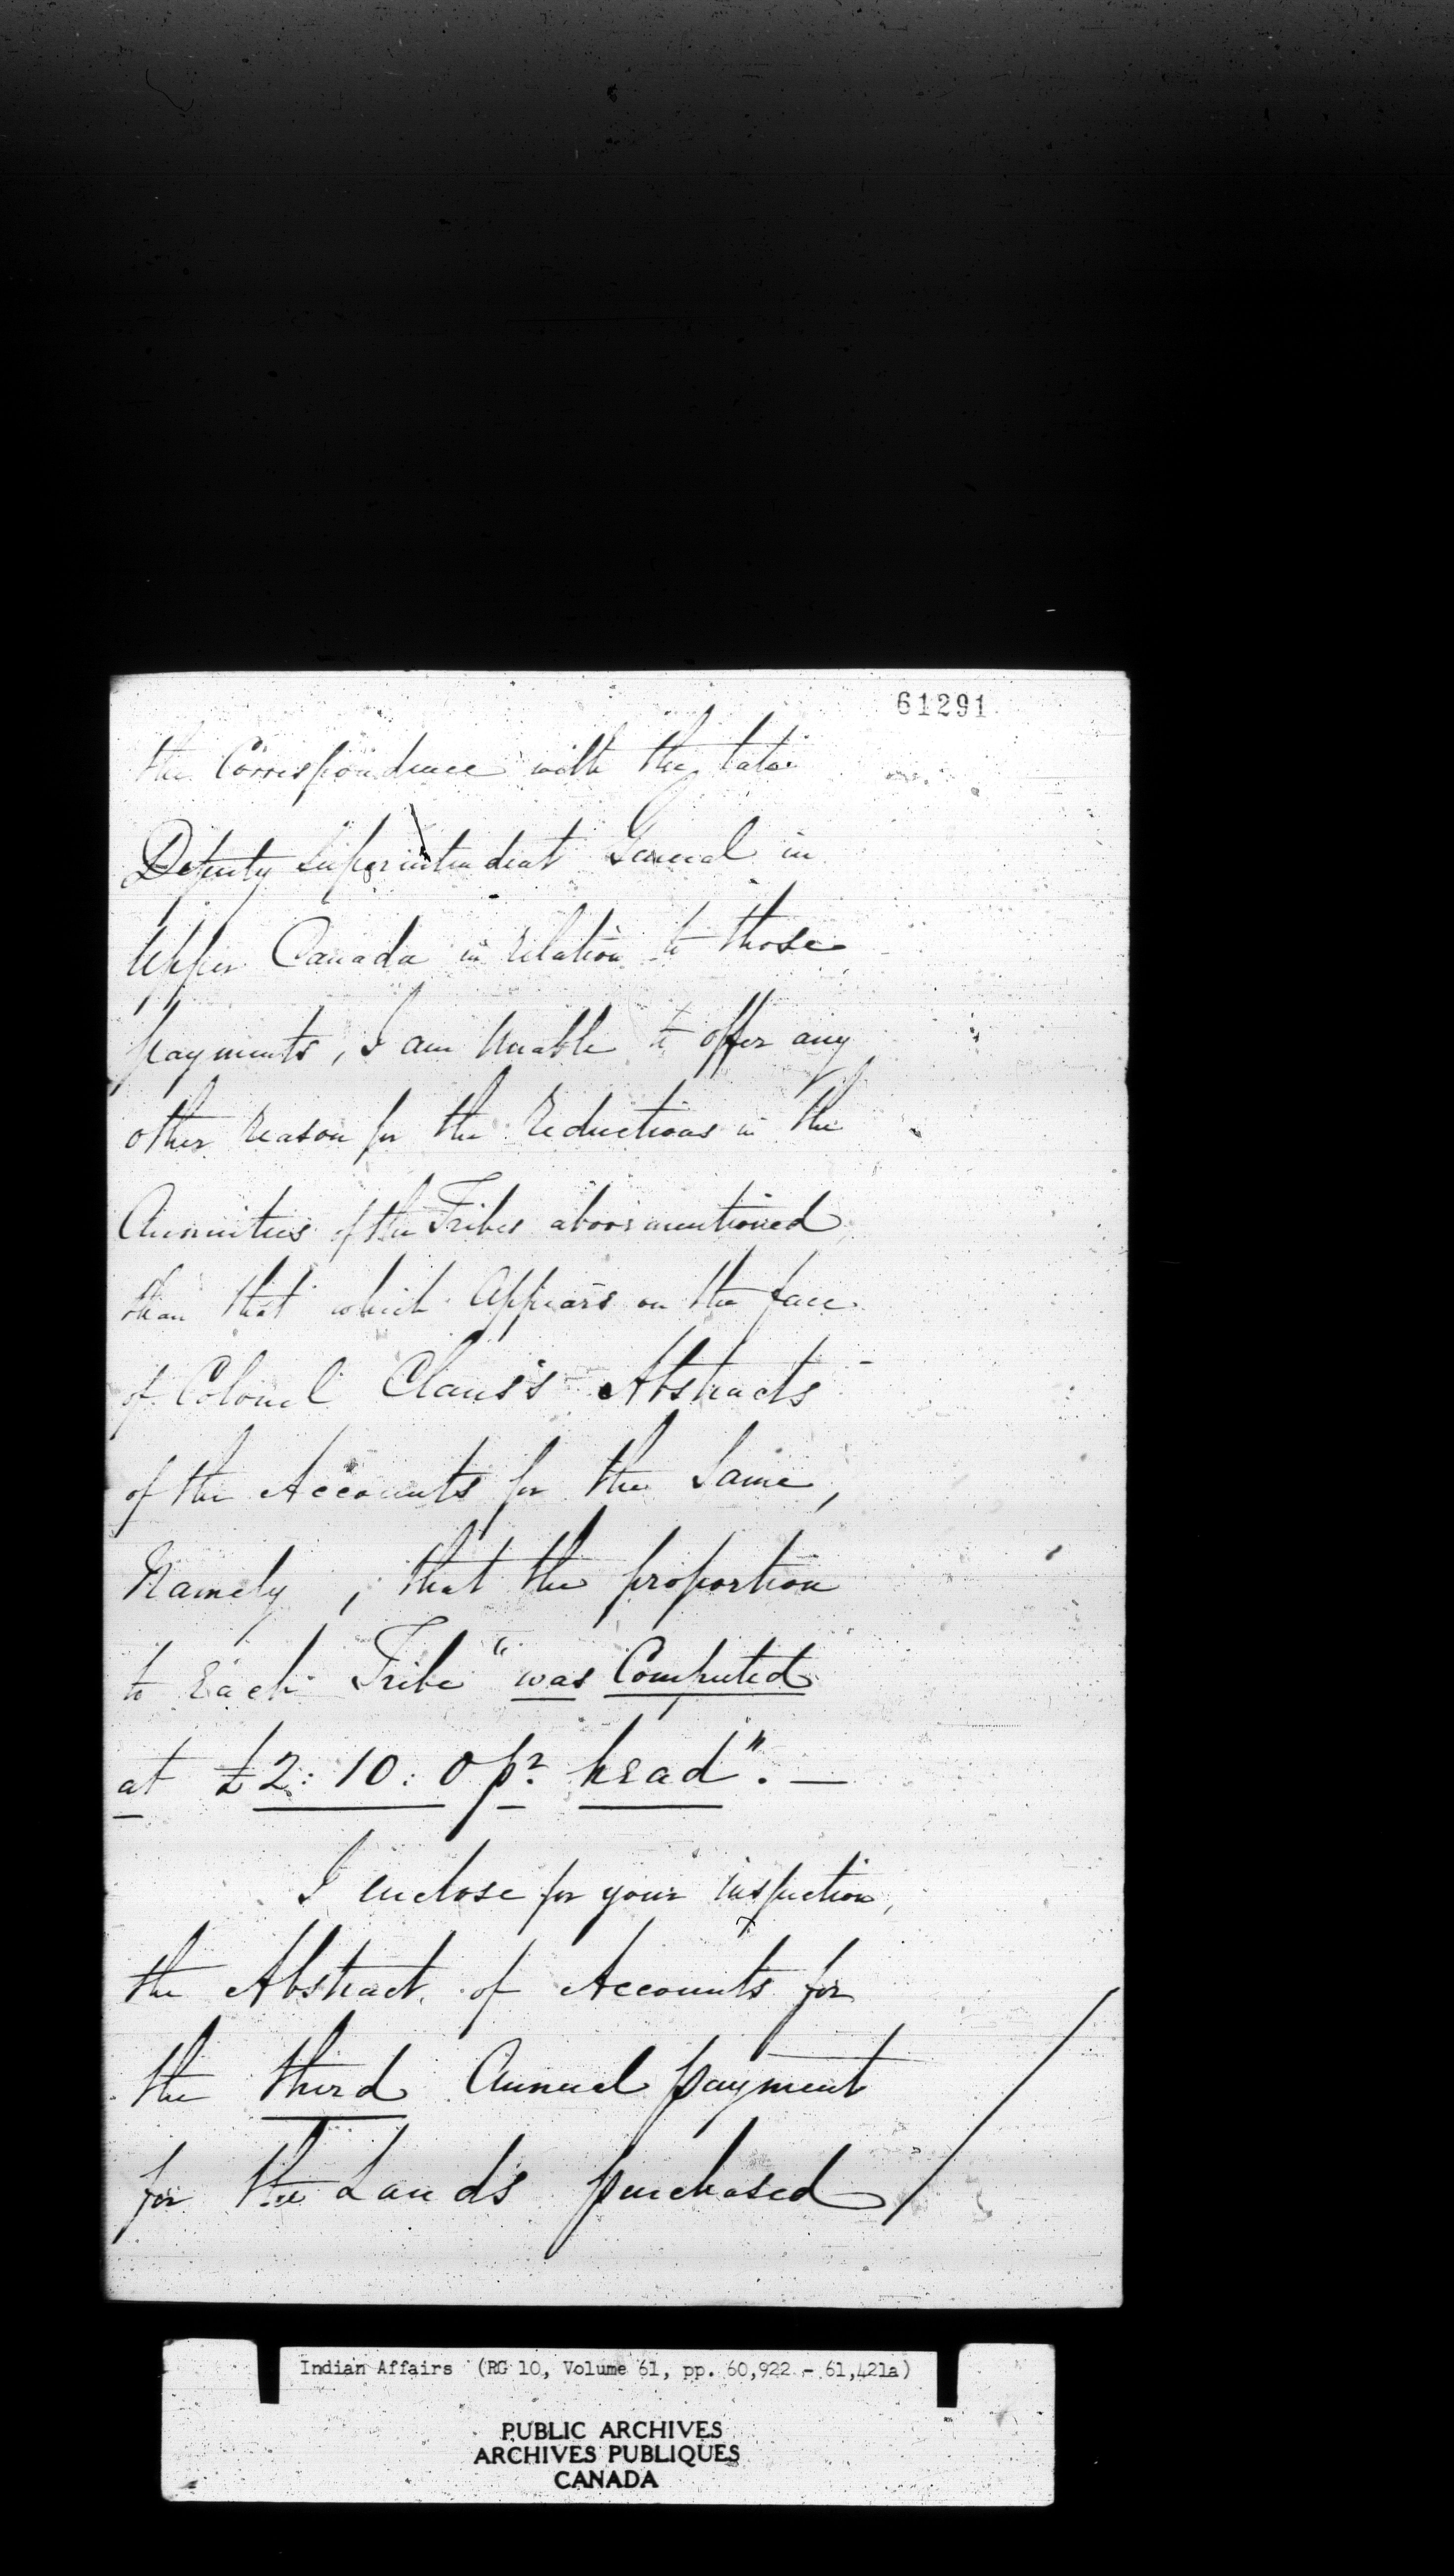 61291
the Correspondence with the late
Deputy Superintendent General in
Upper Canada in relation to those
payments, I am Unable to offer any
other reason for the reductions in the
Annuities of the Tribes abovementioned
than that which Appears on the face
of Colonel Claus's Abstracts
of the Accounts for the Same,
Namely, that the proportion
to Each Tribe "was Computed
at £2: 10: 0 pr. head". —
I enclose for your inspection,
the Abstract of Accounts for
the third Annual payment
for the Lands purchased
Indian Affairs (RG 10, Volume 61, pp. 60,922 - 61,421a)
PUBLIC ARCHIVES
ARCHIVES PUBLIQUES
CANADA